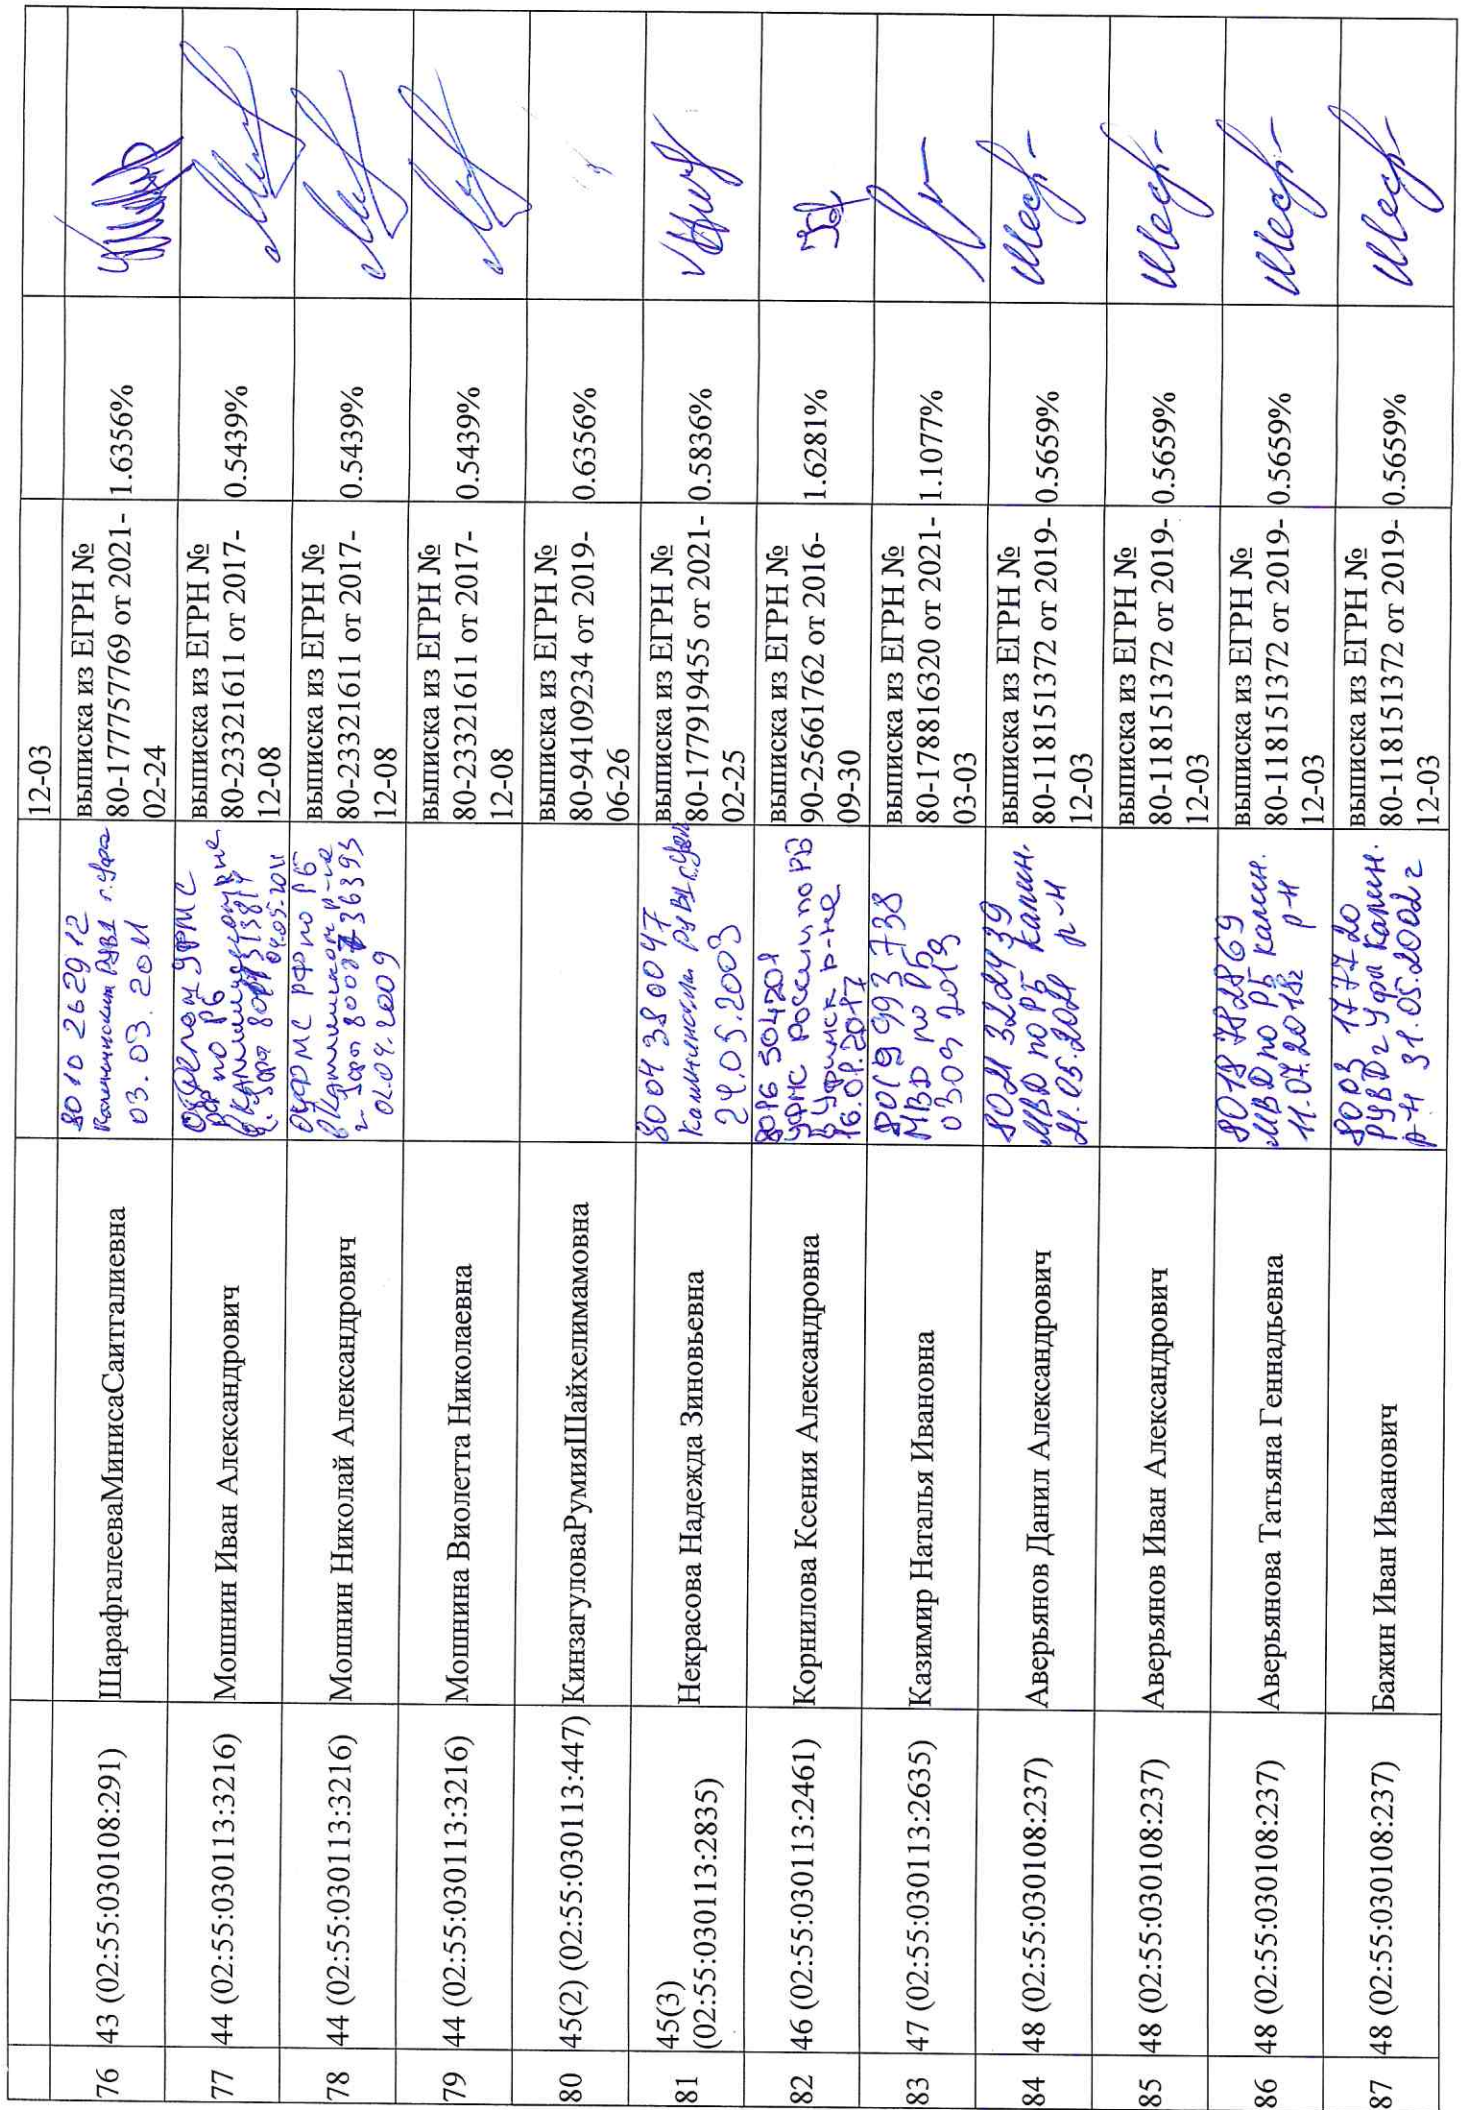 12-03
76
43 (02:55:030108:291)
ШарафгалееваМинисаСаитгалиевна
8010 262912
03.03.2011
выписка из ЕГРН №
80-177757769 от 2021-
02-24
1.6356%
77
44 (02:55:030113:3216)
Мошнин Иван Александрович
по РБ
04.05.2011
выписка из ЕГРН №
80-23321611 от 2017-
12-08
0.5439%
78
44 (02:55:030113:3216)
Мошнин Николай Александрович
ОУФМС РФ по РБ
выписка из ЕГРН №
80-23321611 от 2017-
12-08
0.5439%
79
44 (02:55:030113:3216)
Мошнина Виолетта Николаевна
выписка из ЕГРН №
80-23321611 от 2017-
12-08
0.5439%
80
45(2) (02:55:030113:447)
КинзагуловаРумияШайхелимамовна
выписка из ЕГРН №
80-94109234 от 2019-
06-26
0.6356%
81
45(3)
(02:55:030113:2835)
Некрасова Надежда Зиновьевна
8004 380047
24.05.2003
выписка из ЕГРН №
80-177919455 от 2021-
02-25
0.5836%
82
46 (02:55:030113:2461)
Корнилова Ксения Александровна
8016 504201
выписка из ЕГРН №
90-25661762 от 2016-
09-30
1.6281%
83
47 (02:55:030113:2635)
Казимир Наталья Ивановна
8019 993738
МВД по РБ
0309 2019
выписка из ЕГРН №
80-178816320 от 2021-
03-03
1.1077%
84
48 (02:55:030108:237)
Аверьянов Данил Александрович
8021 322439
МВД по РБ калин.
21.05.2021 р-н
выписка из ЕГРН №
80-118151372 от 2019-
12-03
0.5659%
85
48 (02:55:030108:237)
Аверьянов Иван Александрович
выписка из ЕГРН №
80-118151372 от 2019-
12-03
0.5659%
86
48 (02:55:030108:237)
Аверьянова Татьяна Геннадьевна
8018 782869
МВД по РБ калин.
11.07.2018г р-н
выписка из ЕГРН №
80-118151372 от 2019-
12-03
0.5659%
87
48 (02:55:030108:237)
Бажин Иван Иванович
8003 177720
РУВД г Уфа калин.
р-н 31.05.2002 г
выписка из ЕГРН №
80-118151372 от 2019-
12-03
0.5659%